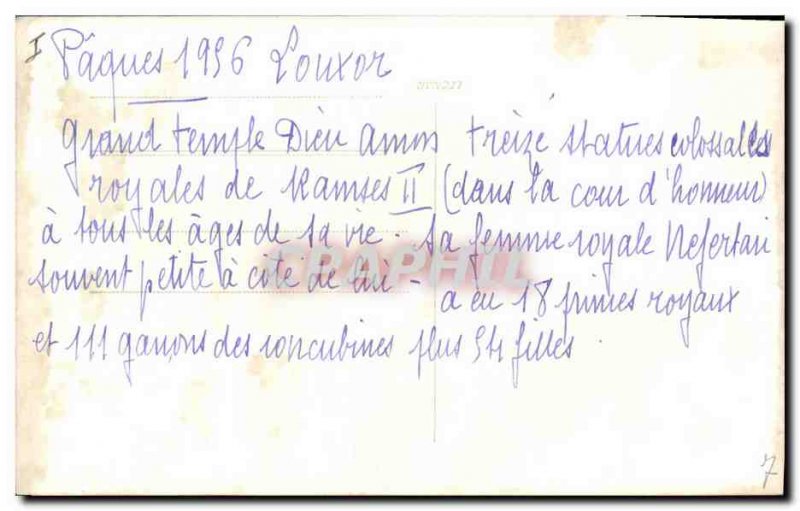 I
Pâques 1956 Louxor
Grand temple Dieu Amon treize statues colossalles
royales de Ramses II (dans la cour d'honneur)
à tous les âges de sa vie. Sa femme royale Nefertari
souvent petite à côté de lui - a eu 18 princes royaux
et 111 garçons des concubines plus 54 filles.
CPAPHIL
7